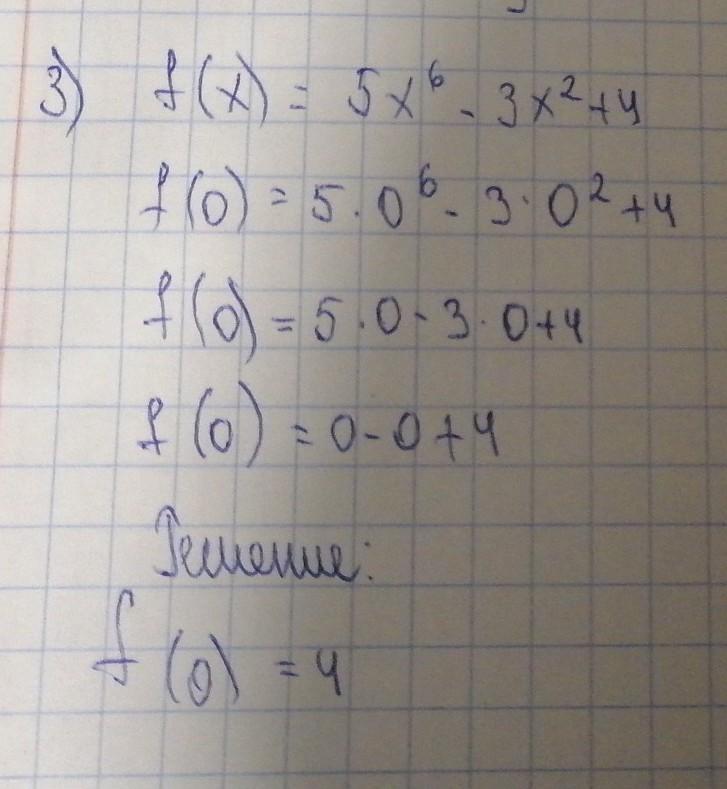 3) f(x) = 5x⁶ - 3x² + 4
f(0) = 5 · 0⁶ - 3 · 0² + 4
f(0) = 5 · 0 - 3 · 0 + 4
f(0) = 0 - 0 + 4
Решение:
f(0) = 4